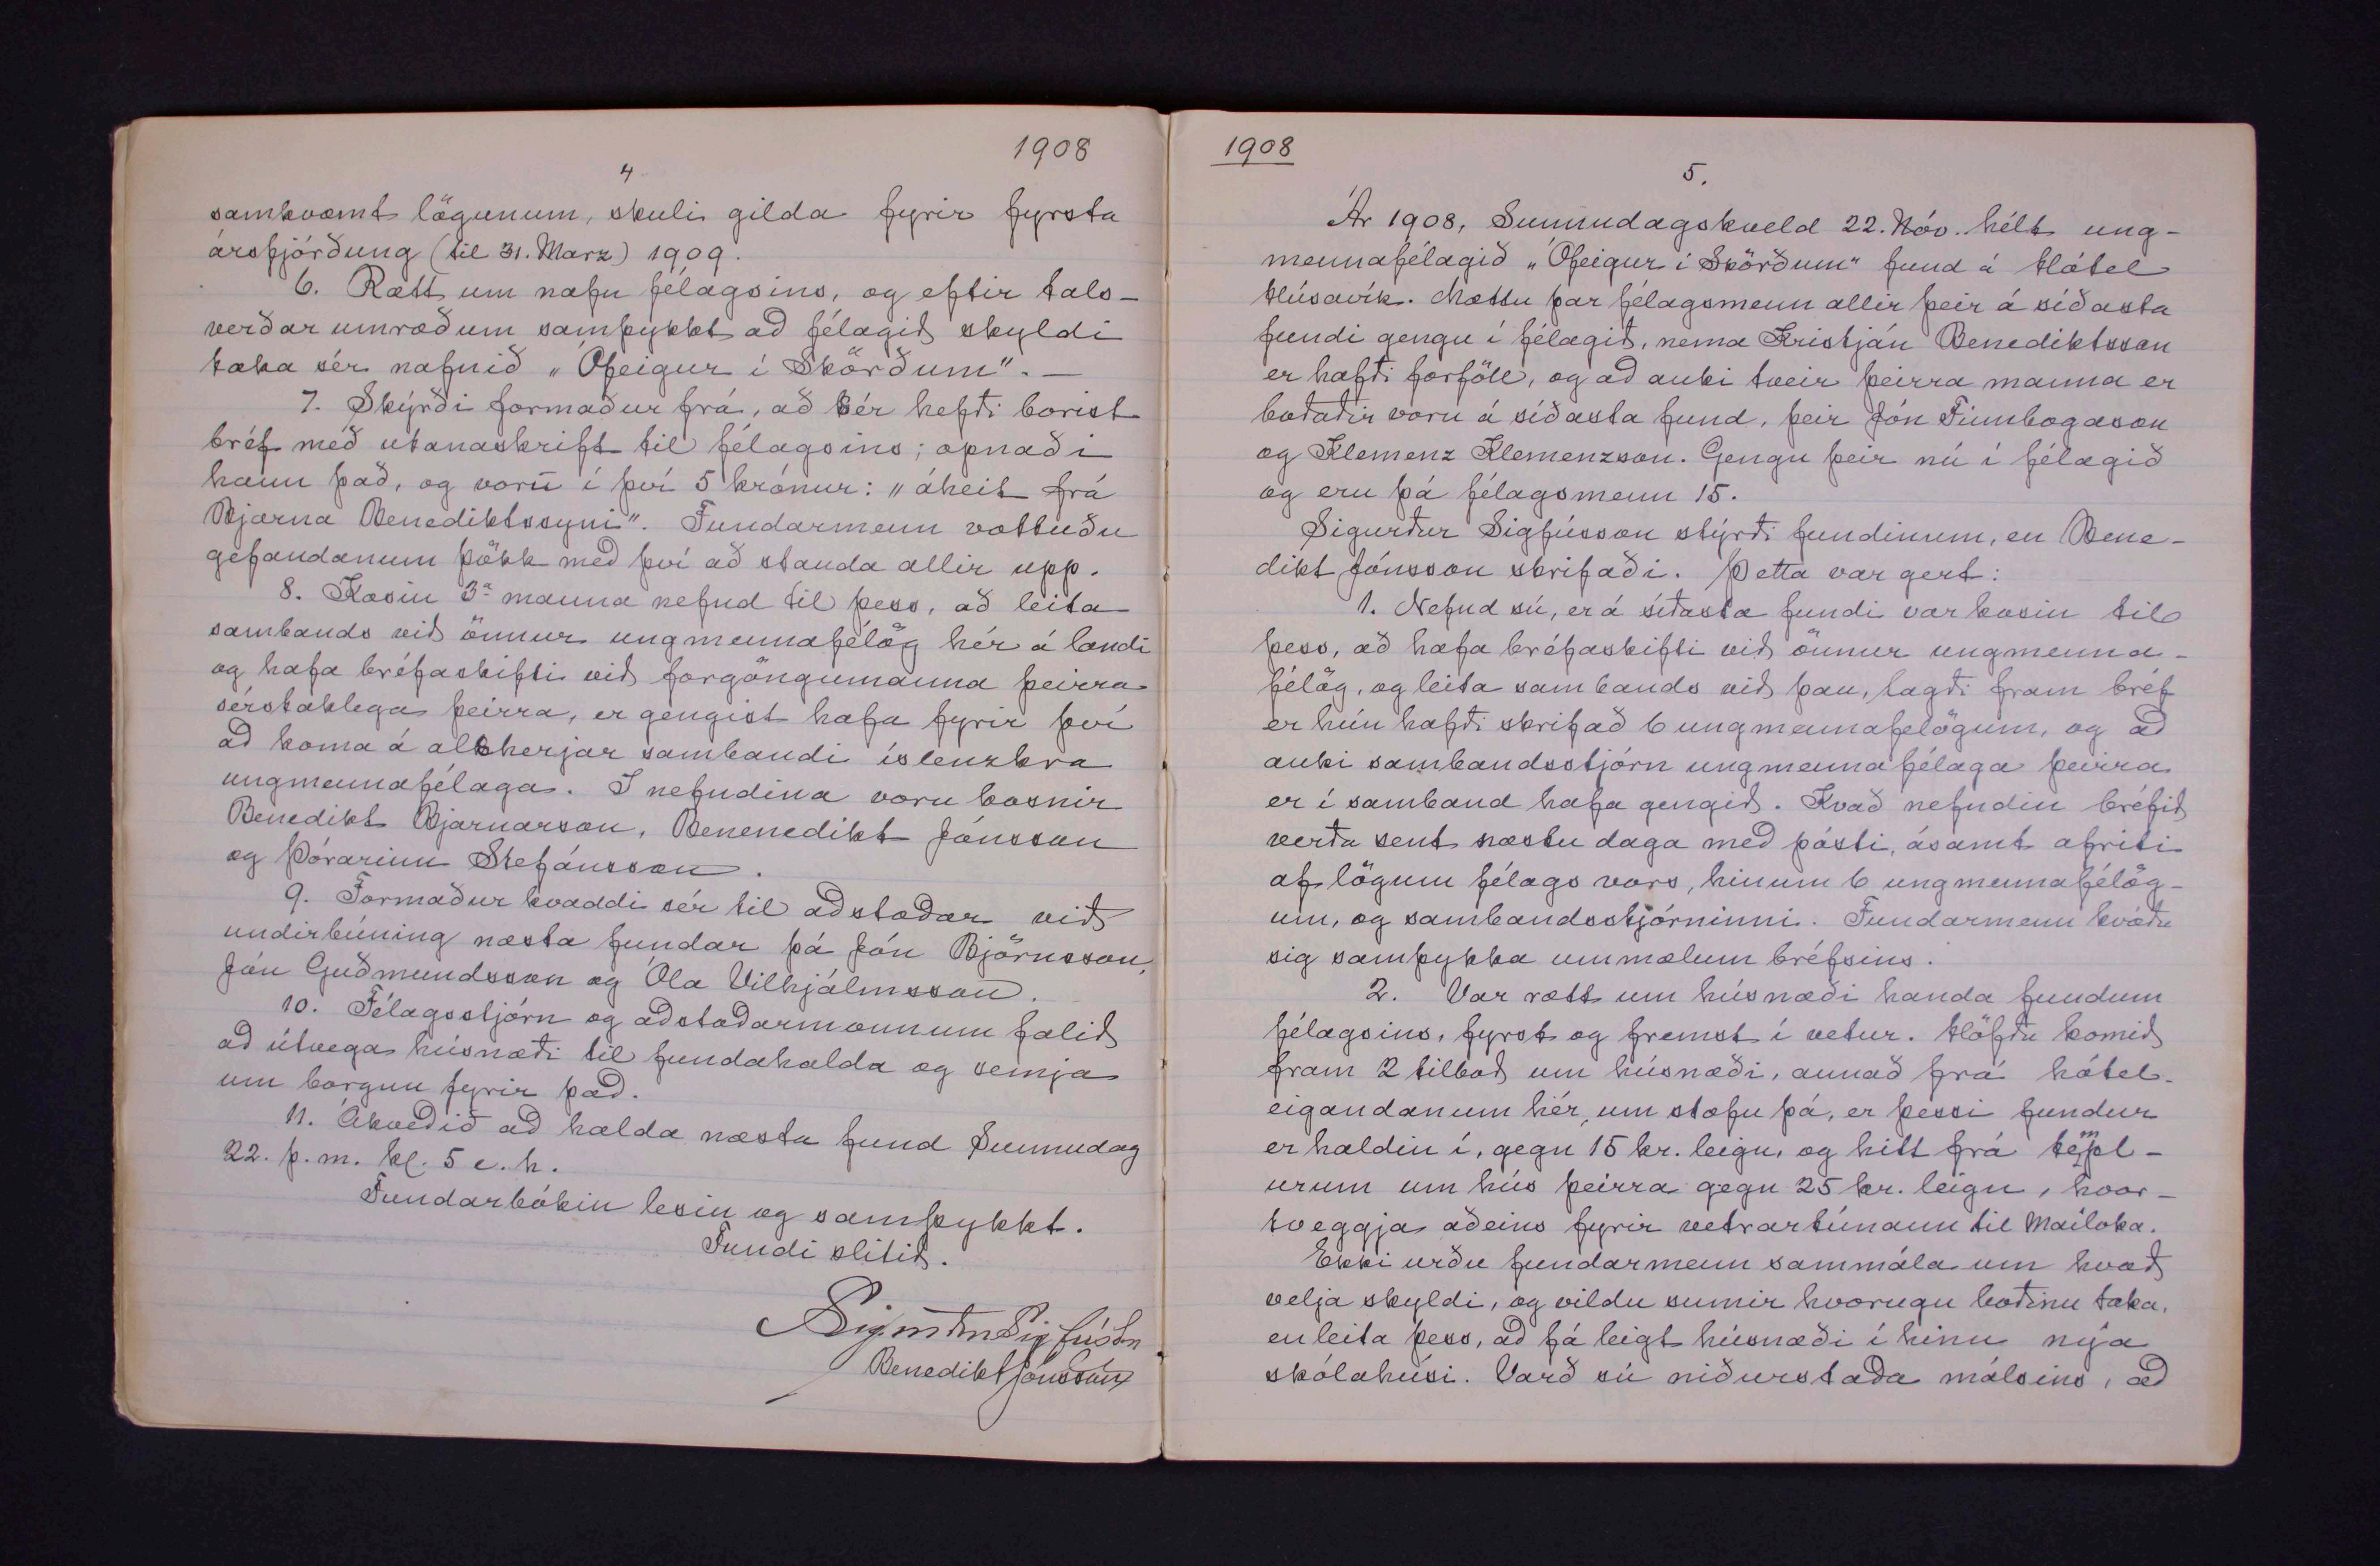 1908
4
samkvæmt lögunum, skuli gilda fyrir fyrsta
ársfjórðung (til 31. Marz) 1909.
6. Rætt um nafn félagsins, og eftir tals-
verðar umræðum samþykkt að félagið skyldi
taka sér nafnið „Ófeigur í Skörðum". —
7. Skýrði formaður frá, að sér hefði borist
bréf með utanaskrift til félagsins; opnaði
hann það, og voru í því 5 krónur: „áheit frá
Bjarna Benediktssyni". Fundarmenn vottuðu
gefandanum þökk með því að standa allir upp.
8. Kosin 3a manna nefnd til þess, að leita
sambands við önnur ungmennafélög hér á landi
og hafa bréfaskifti við forgöngumanna þeirra
sérstaklega þeirra, er gengist hafa fyrir því
að koma á allsherjar sambandi íslenzkra
ungmennafélaga. I nefndina voru kosnir
Benedikt Bjarnarson, Benenedikt Jónsson
og Þórarinn Stefánsson.
9. Formaður kvaddi sér til aðstoðar við
undirbúning næsta fundar þá Jón Björnsson,
Jón Guðmundsson og Óla Vilhjálmsson.
10. Félagsstjórn og aðstoðarmonnum falið
að útvega húsnæði til fundahalda og semja
um borgun fyrir það.
11. Ákveðið að halda næsta fund Sunnudag
22. þ.m. kl. 5 e.h.
Fundarbókin lesin og samþykkt.
Fundi slitið.
Sigurður Sigfússon
Benedikt Jónsson
1908
5.
Ár 1908, Sunnudagskveld 22. Nóv. hélt ung-
mennafélagið „Ófeigur í Skörðum" fund á Hótel
Húsavík. Mættu þar félagsmenn allir þeir á síðasta
fundi gengu í félagið, nema Kristján Benediktsson
er hafði forföll, og að auki tveir þeirra manna er
boðaðir voru á síðasta fund, þeir Jón Finnbogason
og Klemenz Klemenzson. Gengu þeir nú í félagið
og eru þá félagsmenn 15.
Sigurður Sigfússon stýrði fundinum, en Bene-
dikt Jónsson skrifaði. Þetta var gert:
1. Nefnd sú, er á síðasta fundi var kosin til
þess, að hafa bréfaskifti við önnur ungmenna-
félög, og leita sambands við þau, lagði fram bréf
er hún hafði skrifað 6 ungmennafelögum, og að
auki sambandsstjórn ungmennafélaga þeirra
er í samband hafa gengið. Kvað nefndin bréfið
verða sent næstu daga með pósti, ásamt afriti
af lögum félags vors, hinum 6 ungmennafélög-
um, og sambandsstjórninni. Fundarmenn kváðu
sig samþykka ummælum bréfsins.
2. Var rætt um húsnæði handa fundum
félagsins, fyrst og fremst í vetur. Höfðu komið
fram 2 tilboð um húsnæði, annað frá hótel-
eigandanum hér, um stofu þá, er þessi fundur
er haldin í, gegn 15 kr. leigu, og hitt frá templ-
urum um hús þeirra gegn 25 kr. leigu, hvor-
tveggja aðeins fyrir vetrartímann til Maíloka.
Ekki urðu fundarmenn sammála um hvað
velja skyldi, og vildu sumir hvorugu boðinu taka,
en leita þess, að fá leigt húsnæði í hinu nýja
skólahúsi. Varð sú niðurstaða málsins, að